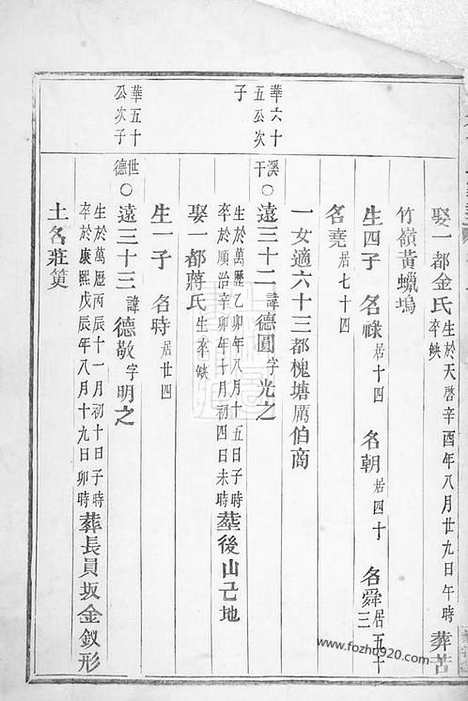 娶一都金氏 生於天啓辛酉八月廿九日午時 卒缺 葬苦
竹嶺黃蠟塢
生四子 名祿 居十四 名朝 居四十 名舜 居五十三
名堯 居七十四
一女適六十三都槐塘厲伯商
華六十五公次子 溪干 ○遠三十二 諱德圓 字光之
生於萬歷乙卯年八月十五日子時 卒於順治辛卯年十月初四日未時 塟後山己地
娶一都蔣氏 生卒缺
生一子 名時 居廿四
華五十公次子 世德 ○遠三十三 諱德敬 字明之
生於萬歷丙辰十一月初十日子時 卒於康熙戊辰年八月十九日卯時 葬長員坂金釵形
土名莊箕
www.fozhu920.com